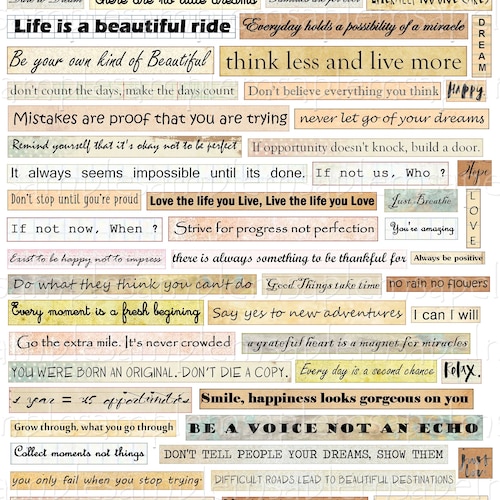 there are no little dreams
Life is a beautiful ride
Everyday holds a possibility of a miracle
DREAM
Be your own kind of Beautiful
think less and live more
don't count the days, make the days count
Don't believe everything you think
HAPPY
Mistakes are proof that you are trying
never let go of your dreams
Remind yourself that it's okay not to be perfect
If opportunity doesn't knock, build a door.
It always seems impossible until its done.
If not us, Who ?
Hope
Don't stop until you're proud
Love the life you Live, Live the life you Love
Just Breathe
LOVE
If not now, When ?
Strive for progress not perfection
You're amazing
Exist to be happy not to impress
there is always something to be thankful for
Always be positive
Do what they think you can't do
Good Things take time
no rain no flowers
Every moment is a fresh begining
Say yes to new adventures
I can I will
Go the extra mile. It's never crowded
a grateful heart is a magnet for miracles
YOU WERE BORN AN ORIGINAL. DON'T DIE A COPY.
Every day is a second chance
Relax.
1 year = 365 opportunities
Smile, happiness looks gorgeous on you
Grow through, what you go through
BE A VOICE NOT AN ECHO
Collect moments not things
DON'T TELL PEOPLE YOUR DREAMS, SHOW THEM
you only fail when you stop trying
DIFFICULT ROADS LEAD TO BEAUTIFUL DESTINATIONS